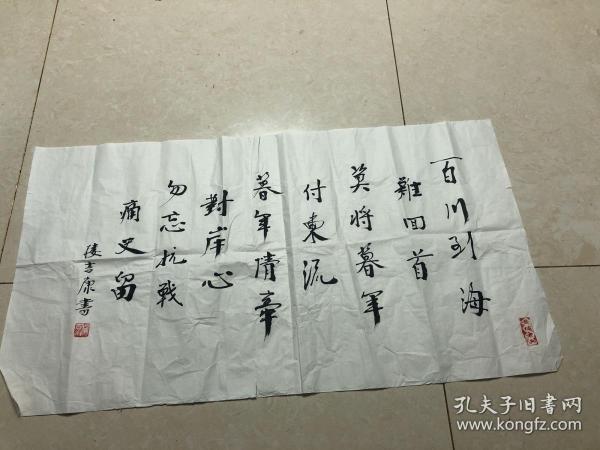 百川到海
難回首
莫将暮年
付東流
暮年情牽
對岸心
勿忘抗戰
痛史留
吉康書
孔夫子旧書网
www.kongfz.com